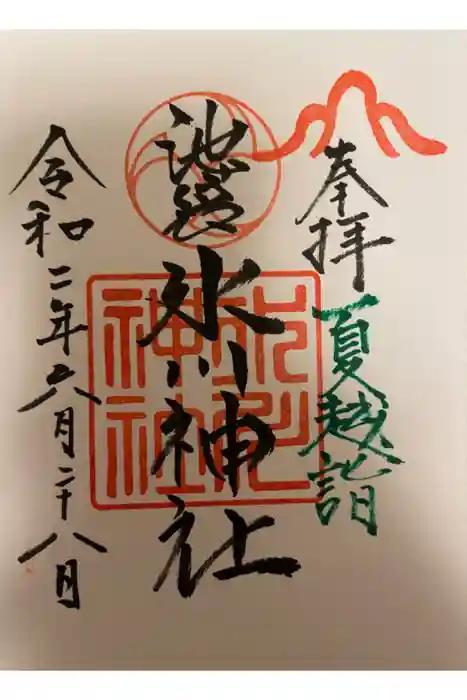 奉拝 夏越詣
池袋氷川神社
令和二年六月二十八日
氷川
神社